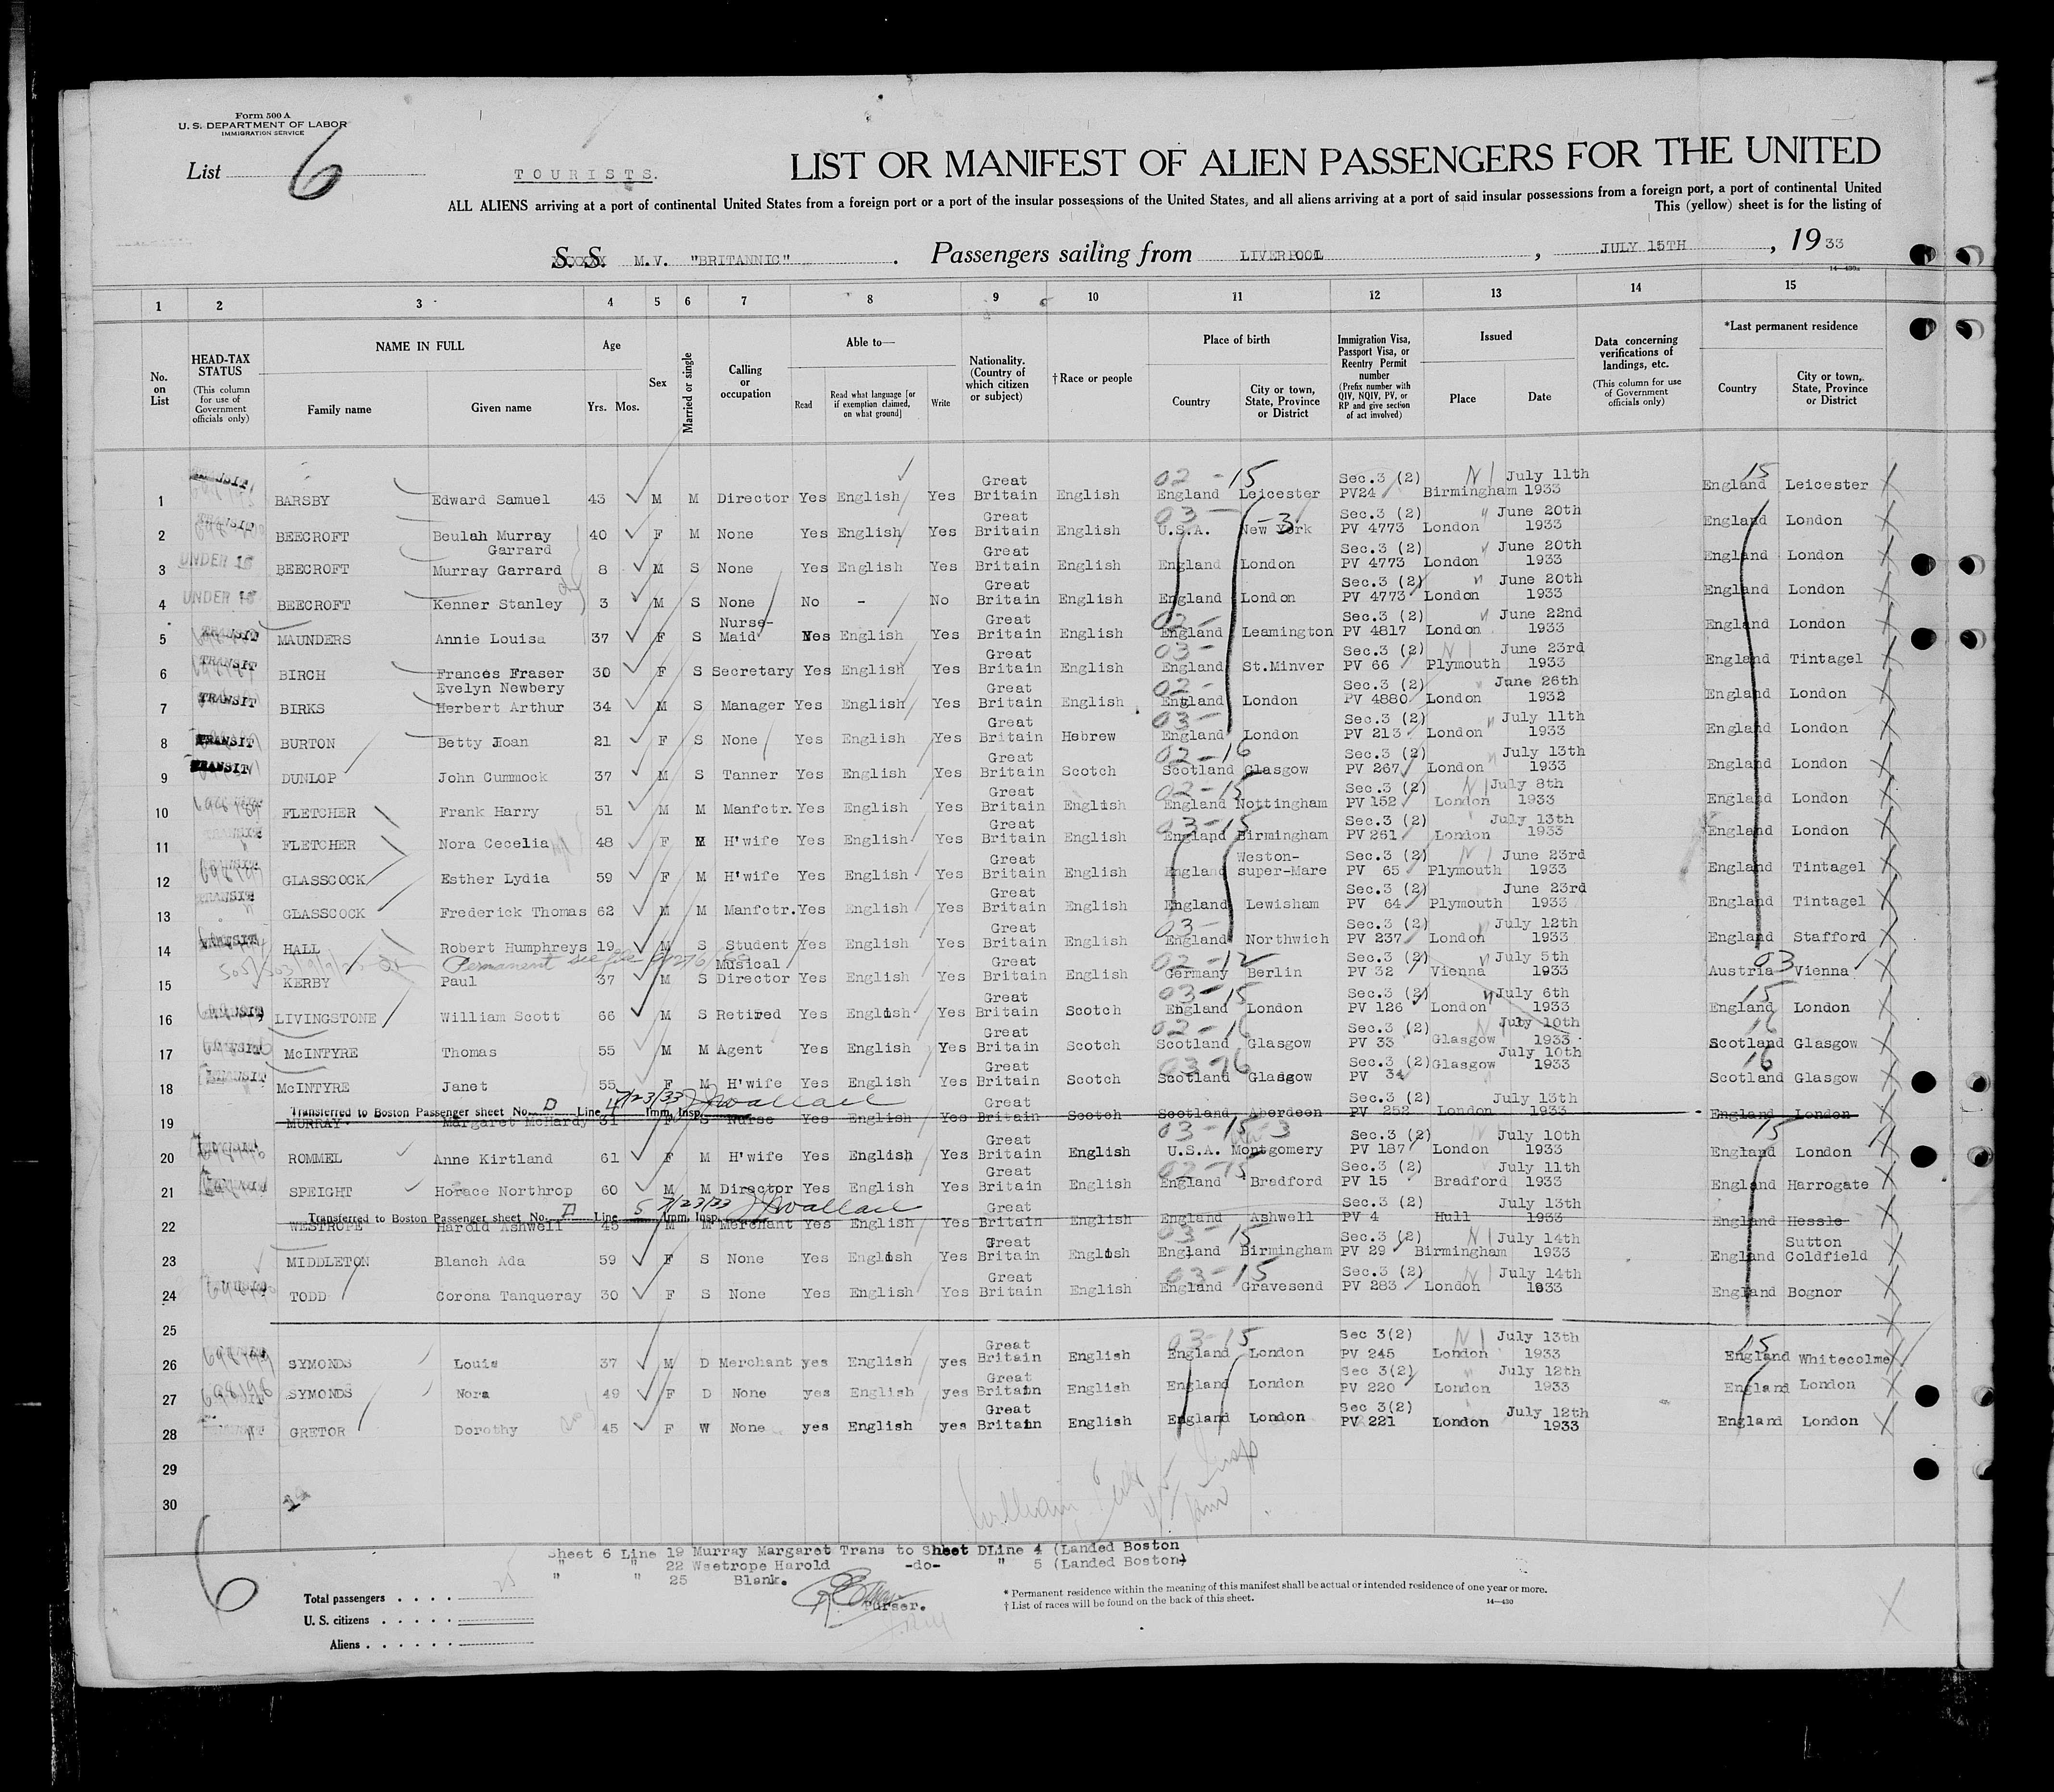 Form 500 A
U. S. DEPARTMENT OF LABOR
IMMIGRATION SERVICE
List 6
TOURISTS.
LIST OR MANIFEST OF ALIEN PASSENGERS FOR THE UNITED
ALL ALIENS arriving at a port of continental United States from a foreign port or a port of the insular possessions of the United States, and all aliens arriving at a port of said insular possessions from a foreign port, a port of continental United
This (yellow) sheet is for the listing of
S. S. M.V. "BRITANNIC" . Passengers sailing from LIVERPOOL , JULY 15TH , 19 33
14—430a
1 2 3 4 5 6 7 8 9 10 11 12 13 14 15
No. on List
HEAD-TAX STATUS (This column for use of Government officials only)
NAME IN FULL
Family name
Given name
Age
Yrs. Mos.
Sex
Married or single
Calling or occupation
Able to—
Read
Read what language [or if exemption claimed, on what ground]
Write
Nationality. (Country of which citizen or subject)
†Race or people
Place of birth
Country
City or town, State, Province or District
Immigration Visa, Passport Visa, or Reentry Permit number (Prefix number with QIV, NQIV, PV, or RP and give section of act involved)
Issued
Place
Date
Data concerning verifications of landings, etc. (This column for use of Government officials only)
*Last permanent residence
Country
City or town, State, Province or District
1 TRANSIT BARSBY Edward Samuel 43 M M Director Yes English Yes Great Britain English 02-15 England Leicester Sec.3 (2) PV24 Birmingham July 11th 1933 15 England Leicester
2 TRANSIT BEECROFT Beulah Murray Garrard 40 F M None Yes English Yes Great Britain English 03-3 U.S.A. New York Sec.3 (2) PV 4773 London June 20th 1933 England London
3 UNDER 16 BEECROFT Murray Garrard 8 M S None Yes English Yes Great Britain English England London Sec.3 (2) PV 4773 London June 20th 1933 England London
4 UNDER 16 BEECROFT Kenner Stanley 3 M S None No - No Great Britain English England London Sec.3 (2) PV 4773 London June 20th 1933 England London
5 TRANSIT MAUNDERS Annie Louisa 37 F S Nurse-Maid Yes English Yes Great Britain English 02- England Leamington Sec.3 (2) PV 4817 London June 22nd 1933 England London
6 TRANSIT BIRCH Frances Fraser Evelyn Newbery 30 F S Secretary Yes English Yes Great Britain English 03- England St.Minver Sec.3 (2) PV 66 Plymouth June 23rd 1933 England Tintagel
7 TRANSIT BIRKS Herbert Arthur 34 M S Manager Yes English Yes Great Britain English 02- England London Sec.3 (2) PV 4880 London June 26th 1932 England London
8 TRANSIT BURTON Betty Joan 21 F S None Yes English Yes Great Britain Hebrew 03- England London Sec.3 (2) PV 213 London July 11th 1933 England London
9 TRANSIT DUNLOP John Cummock 37 M S Tanner Yes English Yes Great Britain Scotch 02-16 Scotland Glasgow Sec.3 (2) PV 267 London July 13th 1933 England London
10 FLETCHER Frank Harry 51 M M Manfctr. Yes English Yes Great Britain English 02-15 England Nottingham Sec.3 (2) PV 152 London July 8th 1933 England London
11 FLETCHER Nora Cecelia 48 F M H'wife Yes English Yes Great Britain English 03-15 England Birmingham Sec.3 (2) PV 261 London July 13th 1933 England London
12 GLASSCOCK Esther Lydia 59 F M H'wife Yes English Yes Great Britain English England Weston-super-Mare Sec.3 (2) PV 65 Plymouth June 23rd 1933 England Tintagel
13 GLASSCOCK Frederick Thomas 62 M M Manfctr. Yes English Yes Great Britain English England Lewisham Sec.3 (2) PV 64 Plymouth June 23rd 1933 England Tintagel
14 TRANSIT HALL Robert Humphreys 19 M S Student Yes English Yes Great Britain English 03- England Northwich Sec.3 (2) PV 237 London July 12th 1933 England Stafford
Permanent see file
15 KERBY Paul 37 M S Musical Director Yes English Yes Great Britain English 02-12 Germany Berlin Sec.3 (2) PV 32 Vienna July 5th 1933 03 Austria Vienna
16 LIVINGSTONE William Scott 66 M S Retired Yes English Yes Great Britain Scotch 03-15 England London Sec.3 (2) PV 126 London July 6th 1933 15 England London
17 McINTYRE Thomas 55 M M Agent Yes English Yes Great Britain Scotch 02-16 Scotland Glasgow Sec.3 (2) PV 33 Glasgow July 10th 1933 16 Scotland Glasgow
18 TRANSIT McINTYRE Janet 55 F M H'wife Yes English Yes Great Britain Scotch 03-16 Scotland Glasgow Sec.3 (2) PV 34 Glasgow July 10th 1933 16 Scotland Glasgow
Transferred to Boston Passenger sheet No. D Line 4 7/23/33 Imm. Insp. J Wallace
19 MURRAY Margaret McHardy 31 F S Nurse Yes English Yes Great Britain Scotch Scotland Aberdeen Sec.3 (2) PV 252 London July 13th 1933 England London
20 ROMMEL Anne Kirtland 61 F M H'wife Yes English Yes Great Britain English 03-15 3 U.S.A. Montgomery Sec.3 (2) PV 187 London July 10th 1933 15 England London
21 SPEIGHT Horace Northrop 60 M M Director Yes English Yes Great Britain English 02-15 England Bradford Sec.3 (2) PV 15 Bradford July 11th 1933 England Harrogate
Transferred to Boston Passenger sheet No. D Line 5 7/23/33 Imm. Insp. J Wallace
22 WESTROPE Harold Ashwell 45 M M Merchant Yes English Yes Great Britain English England Ashwell Sec.3 (2) PV 4 Hull July 13th 1933 England Hessle
23 MIDDLETON Blanch Ada 59 F S None Yes English Yes Great Britain English 03-15 England Birmingham Sec.3 (2) PV 29 Birmingham July 14th 1933 England Sutton Coldfield
24 TODD Corona Tanqueray 30 F S None Yes English Yes Great Britain English 03-15 England Gravesend Sec.3 (2) PV 283 London July 14th 1933 England Bognor
25
26 SYMONDS Louis 37 M D Merchant yes English yes Great Britain English 03-15 England London Sec 3(2) PV 245 London July 13th 1933 15 England Whitecolme
27 SYMONDS Nora 49 F D None yes English yes Great Britain English England London Sec 3(2) PV 220 London July 12th 1933 England London
28 GRETOR Dorothy 45 F W None yes English yes Great Britain English England London Sec 3(2) PV 221 London July 12th 1933 England London
29
30
William
6
Sheet 6 Line 19 Murray Margaret Trans to Sheet DLine 4 (Landed Boston
" " 22 Westrope Harold -do- " 5 (Landed Boston)
" " 25 Blank.
Purser.
Total passengers . . . .
U. S. citizens . . . . .
Aliens . . . . . .
* Permanent residence within the meaning of this manifest shall be actual or intended residence of one year or more.
† List of races will be found on the back of this sheet.
14—430